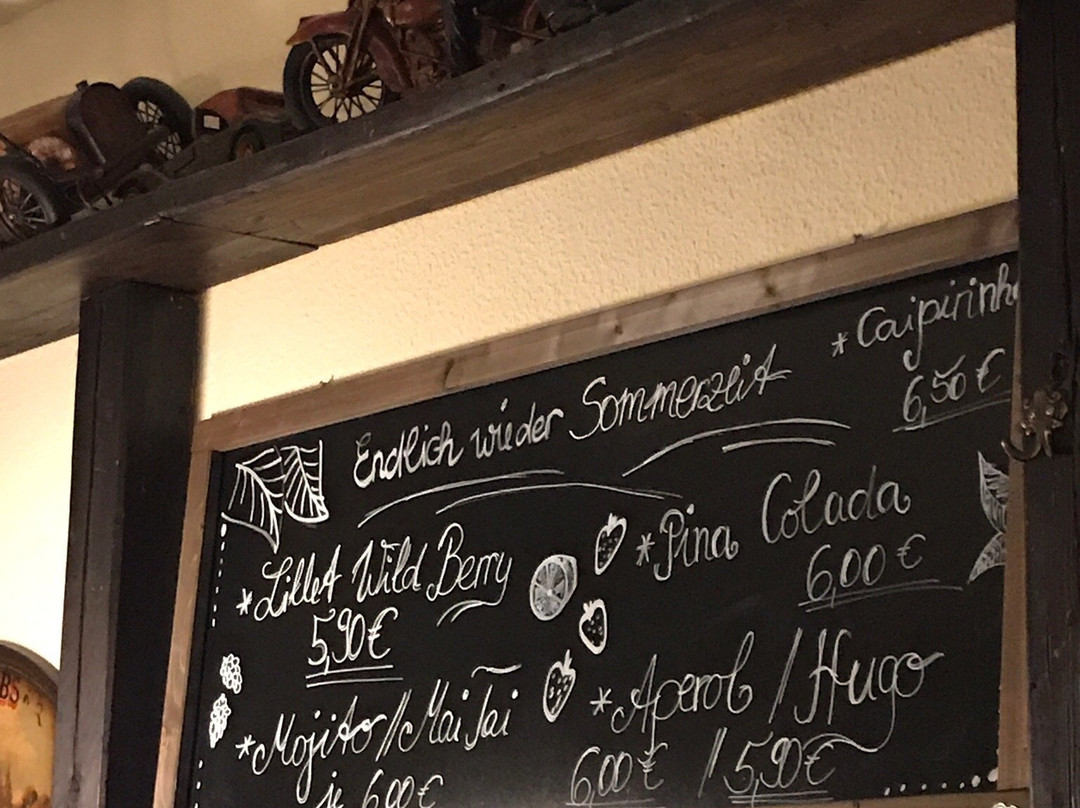 Endlich wieder Sommerzeit
*Caipirinh
6,50 €
*Lillet Wild Berry
5,90 €
*Pina Colada
6,00 €
*Mojito//Mai Tai
je 6,00 €
*Aperol / Hugo
6,00 € / 5,90 €